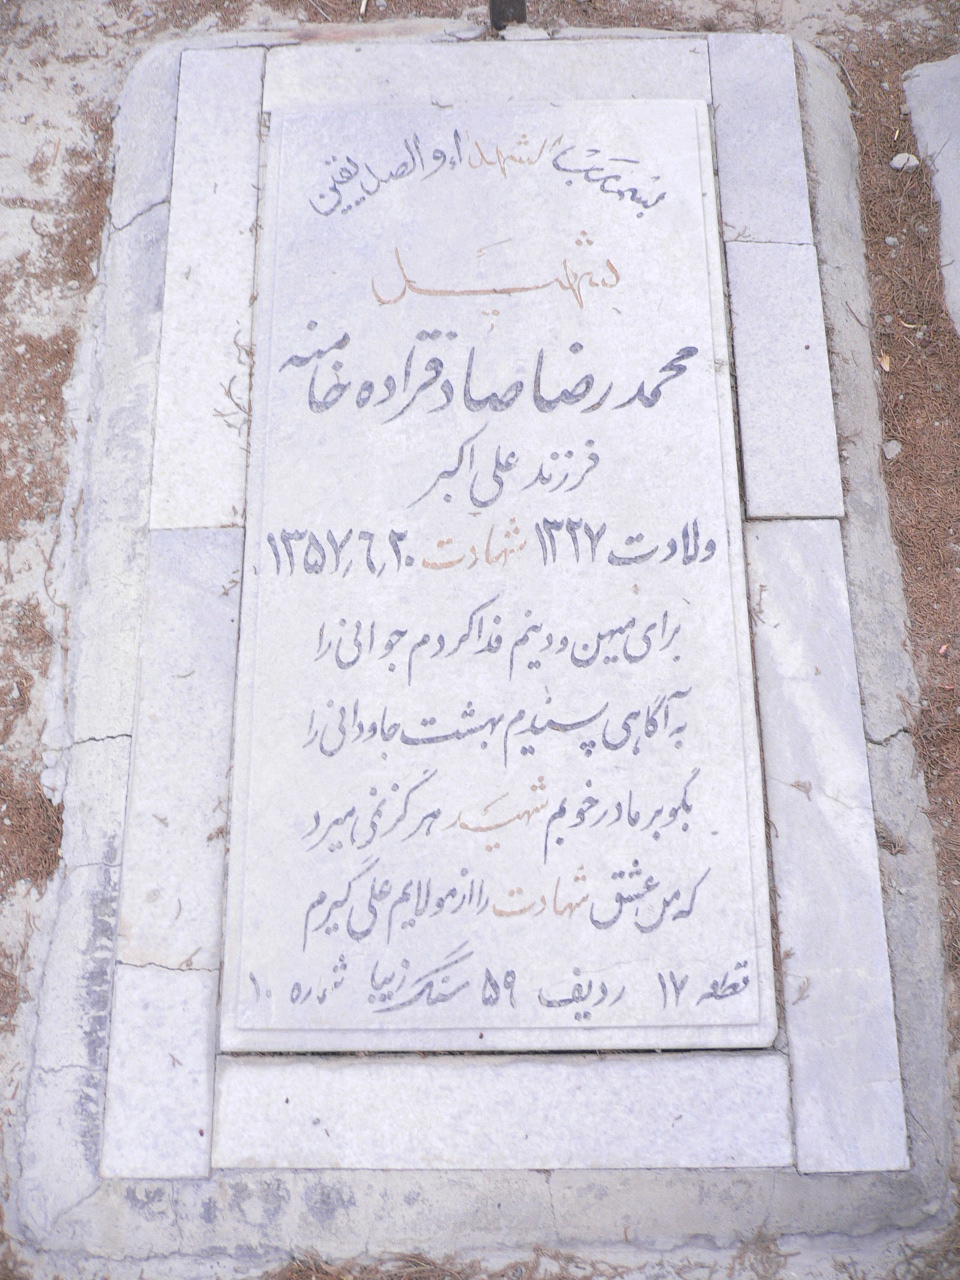 بسم رب الشهداء و الصدیقین
شهید
محمد رضا صادقزاده خامنه
فرزند علی اکبر
ولادت ۱۳۳۷ شهادت ۱۳۵۷٫۶٫۲۰
برای میهن و دینم فدا کردم جوانی را
به آگاهی پسندیدم بهشت جاودانی را
بگو بر مادر خوبم شهید هرگز نمی میرد
که من عشق شهادت را از مولایم علی گیرم
قطعه ۱۷ ردیف ۵۹ سنگ زیبا شماره ۱۰